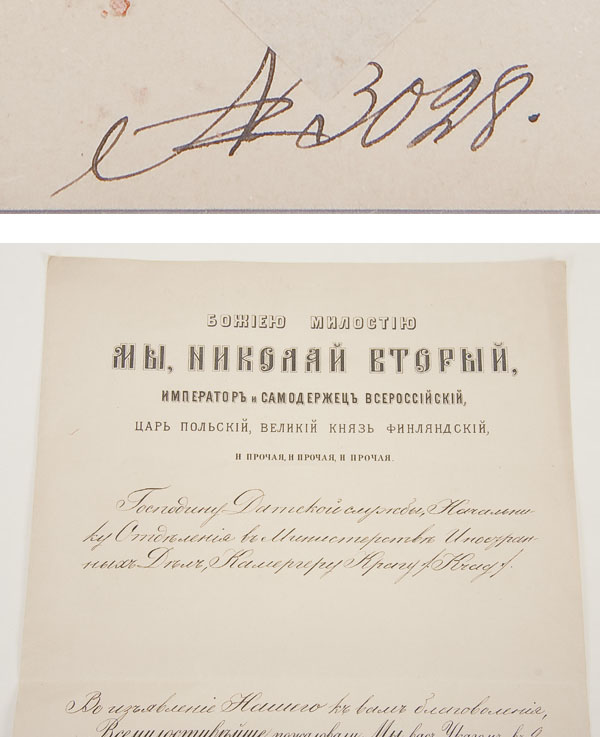 № 3028.
БОЖІЕЮ МИЛОСТІЮ
МЫ, НИКОЛАЙ ВТОРЫЙ,
ИМПЕРАТОРЪ и САМОДЕРЖЕЦЪ ВСЕРОССІЙСКІЙ,
ЦАРЬ ПОЛЬСКІЙ, ВЕЛИКІЙ КНЯЗЬ ФИНЛЯНДСКІЙ,
И ПРОЧАЯ, И ПРОЧАЯ, И ПРОЧАЯ.
Господину Датской службы, Начальни-
ку Отдѣленія въ Министерствѣ Иностран-
ныхъ Дѣлъ, Камергеру Крагу /Krag/.
Во изъявленіе Нашего къ вамъ благоволенія,
Всемилостивѣйше пожаловали Мы васъ Указомъ въ 9